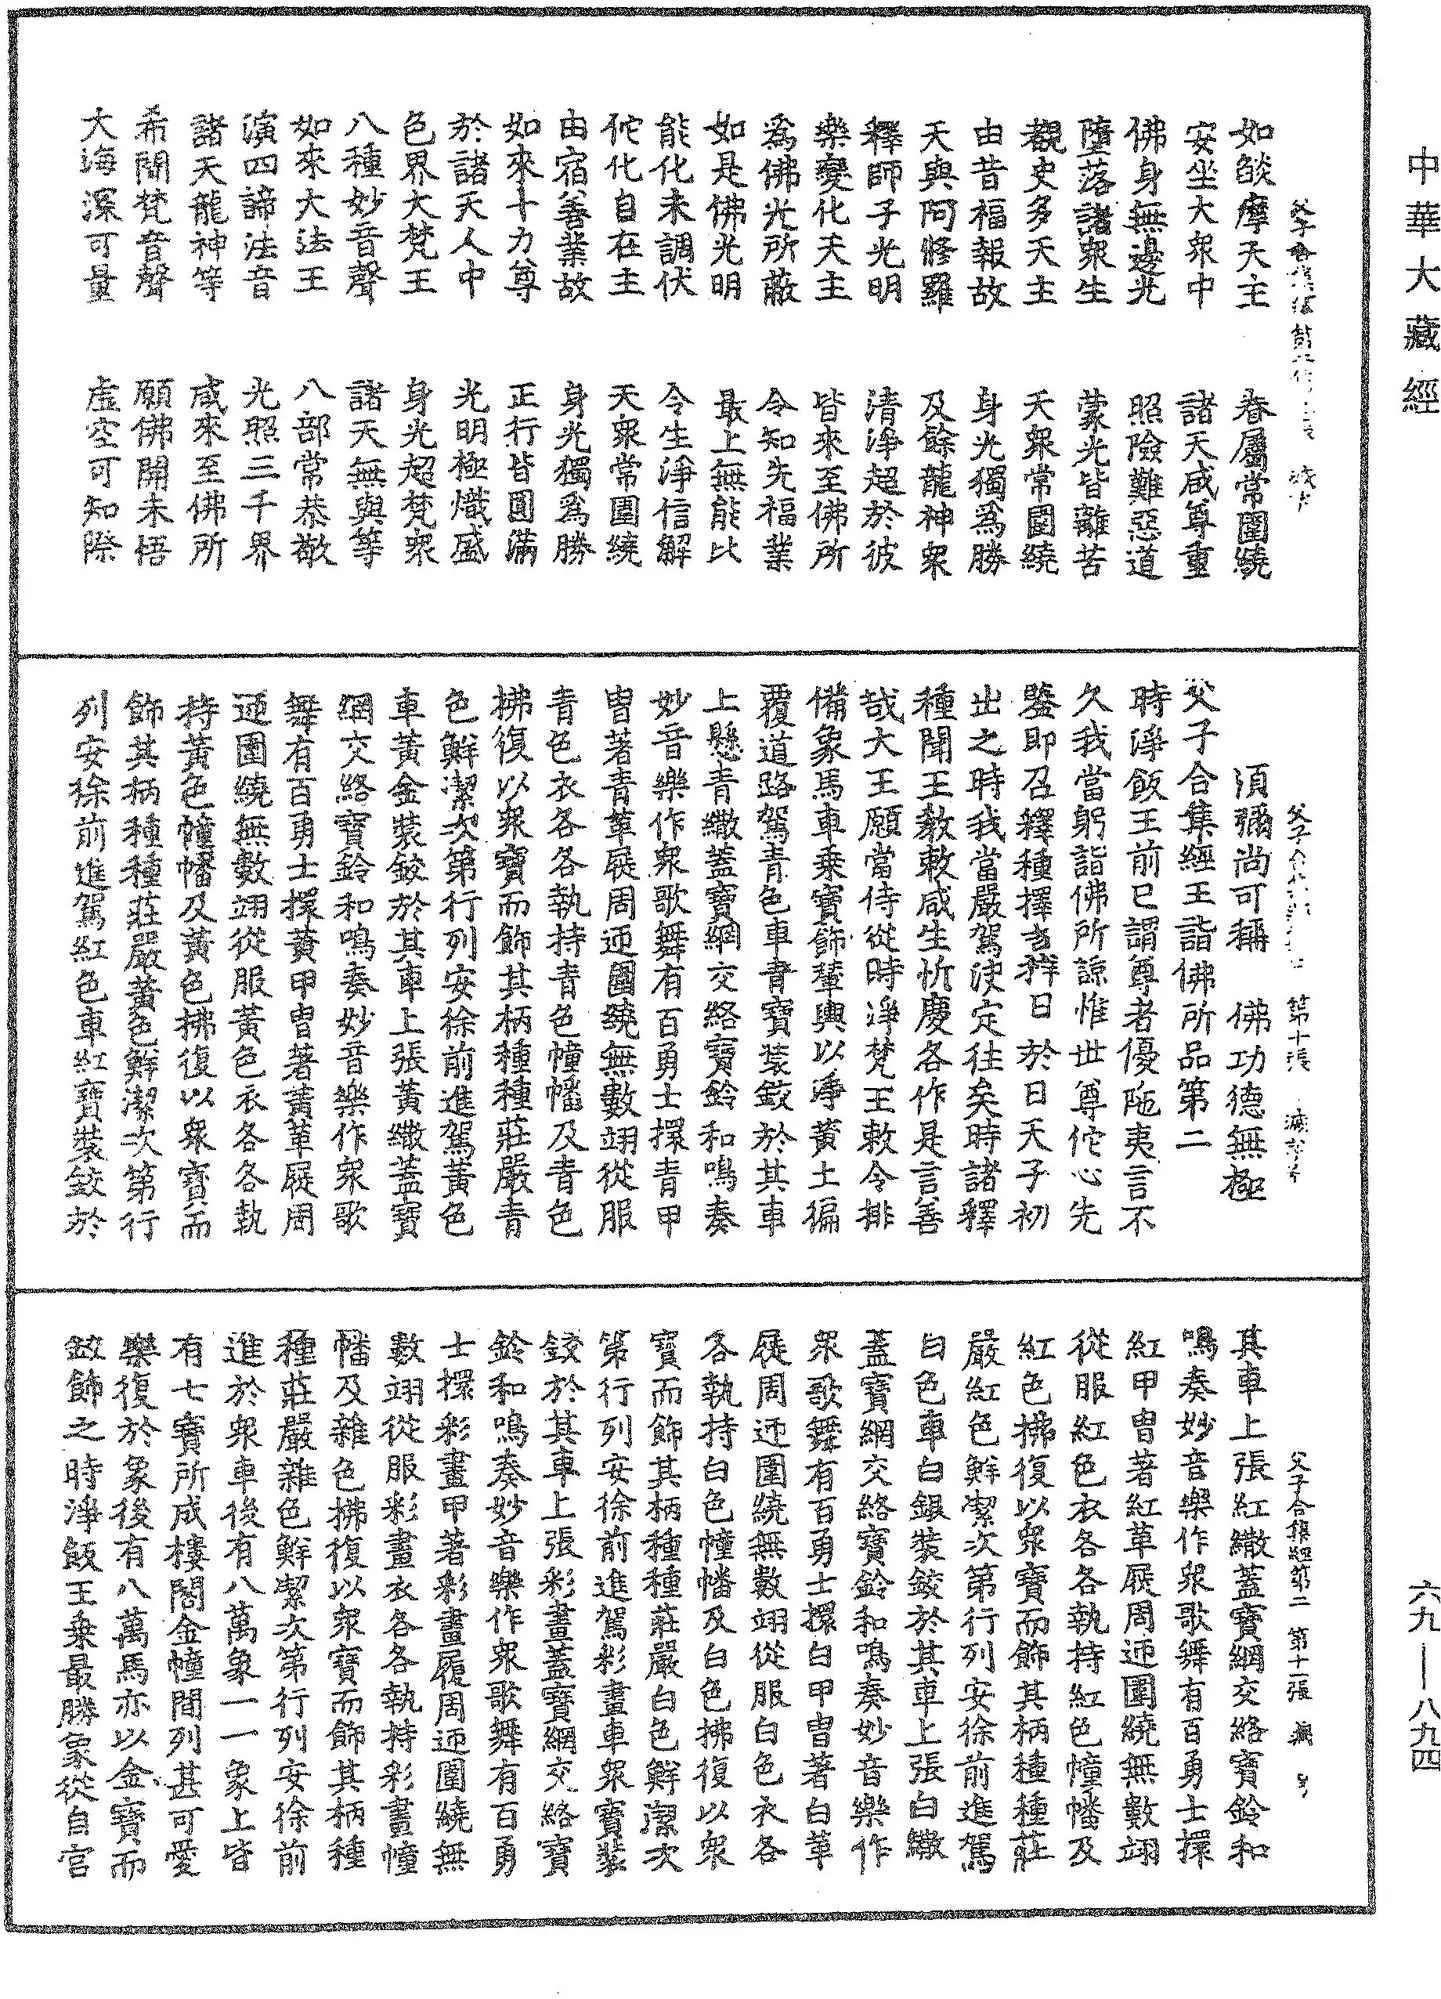 中華大藏經
如燄摩天主　眷屬常圍繞
安坐大眾中　諸天咸尊重
佛身無邊光　照險難惡道
墮落諸眾生　蒙光皆離苦
覩史多天主　天眾常圍繞
由昔福報故　身光獨為勝
天與阿修羅　及餘龍神眾
釋師子光明　清淨超於彼
樂變化天主　皆來至佛所
為佛光所蔽　令知先福業
如是佛光明　最上無能比
能化未調伏　令生淨信解
佗化自在主　天眾常圍繞
由宿善業故　身光獨為勝
如來十力尊　正行皆圓滿
於諸天人中　光明極熾盛
色界大梵王　身光超梵眾
八種妙音聲　諸天無與等
如來大法王　八部常恭敬
演四諦法音　光照三千界
諸天龍神等　咸來至佛所
希聞梵音聲　願佛開未悟
大海深可量　虛空可知際
須彌尚可稱　佛功德無極
父子合集經王詣佛所品第二
時淨飯王前已謂尊者優陁夷言不
久我當躬詣佛所諒惟世尊佗心先
鑒即召釋種擇吉祥日於日天子初
出之時我當嚴駕決定往矣時諸釋
種聞王教敕咸生忻慶各作是言善
哉大王願當侍從時淨梵王敕令排
備象馬車乘寶飾輦輿以淨黃土徧
覆道路駕青色車青寶裝鈫於其車
上懸青繖蓋寶網交絡寶鈴和鳴奏
妙音樂作眾歌舞有百勇士擐青甲
冑著青革屣周迊圍繞無數翊從服
青色衣各各執持青色幢幡及青色
拂復以眾寶而飾其柄種種莊嚴青
色鮮潔次第行列安徐前進駕黃色
車黃金裝鈫於其車上張黃繖蓋寶
網交絡寶鈴和鳴奏妙音樂作眾歌
舞有百勇士擐黃甲冑著黃革屣周
迊圍繞無數翊從服黃色衣各各執
持黃色幢幡及黃色拂復以眾寶而
飾其柄種種莊嚴黃色鮮潔次第行
列安徐前進駕紅色車紅寶裝鈫於
父子合集經第二　第十一張
其車上張紅繖蓋寶網交絡寶鈴和
鳴奏妙音樂作眾歌舞有百勇士擐
紅甲冑著紅革屣周迊圍繞無數翊
從服紅色衣各各執持紅色幢幡及
紅色拂復以眾寶而飾其柄種種莊
嚴紅色鮮潔次第行列安徐前進駕
白色車白銀裝鈫於其車上張白繖
蓋寶網交絡寶鈴和鳴奏妙音樂作
眾歌舞有百勇士擐白甲冑著白革
屣周迊圍繞無數翊從服白色衣各
各執持白色幢幡及白色拂復以眾
寶而飾其柄種種莊嚴白色鮮潔次
第行列安徐前進駕彩畫車眾寶裝
鈫於其車上張彩畫蓋寶網交絡寶
鈴和鳴奏妙音樂作眾歌舞有百勇
士擐彩畫甲著彩畫履周迊圍繞無
數翊從服彩畫衣各各執持彩畫幢
幡及雜色拂復以眾寶而飾其柄種
種莊嚴雜色鮮潔次第行列安徐前
進於眾車後有八萬象一一象上皆
有七寶所成樓閣金幢間列甚可愛
樂復於象後有八萬馬亦以金寶而
鈫飾之時淨飯王乘最勝象從自宮
六九—八九四